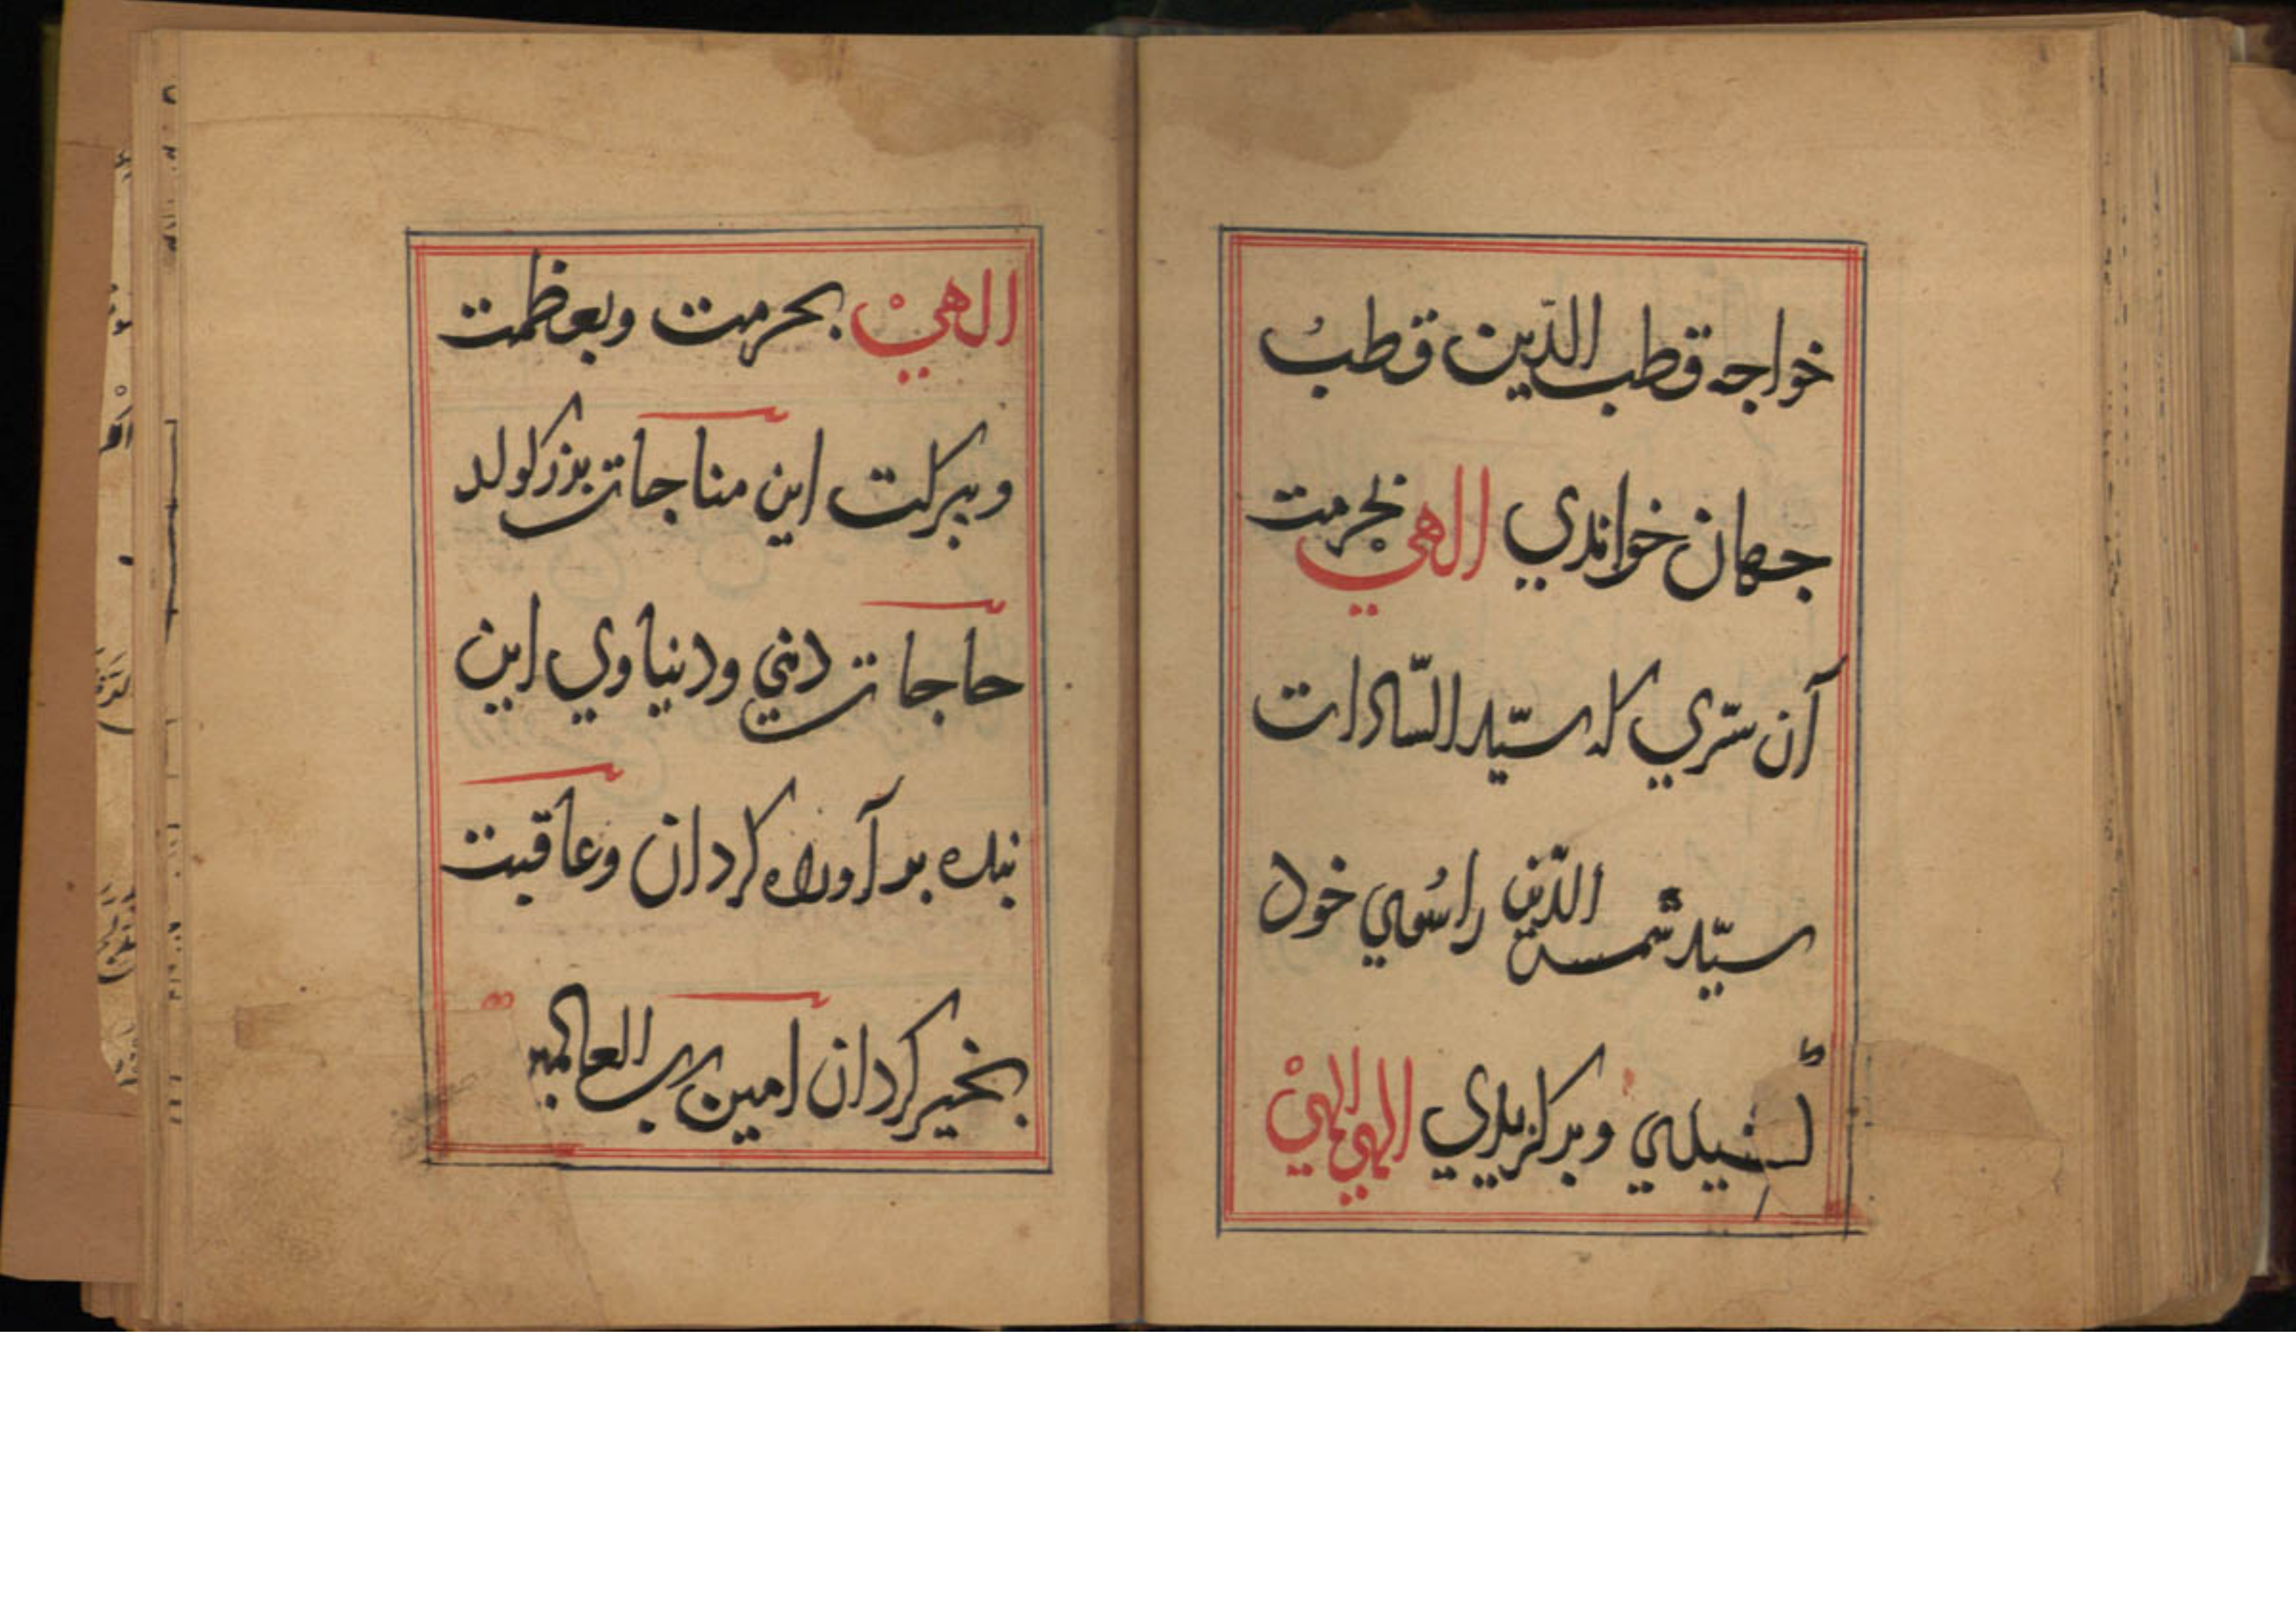 خواجه قطب الدّین قطبُ
جهان خواندي الهي بحرمت
آن سّري که سیّد السّادات
سیّد شمس الدّین را سُوي خود
کشیدي وبرکزیدي الهي الهي الهيْ
الهيْ بحرمت وبعظمت
وببرکت این مناجات بزرکوار
حاجات دیني ودنیاوي این
بنده بر آورده کردان وعاقبت
بخیر کردان امین رب العالمین